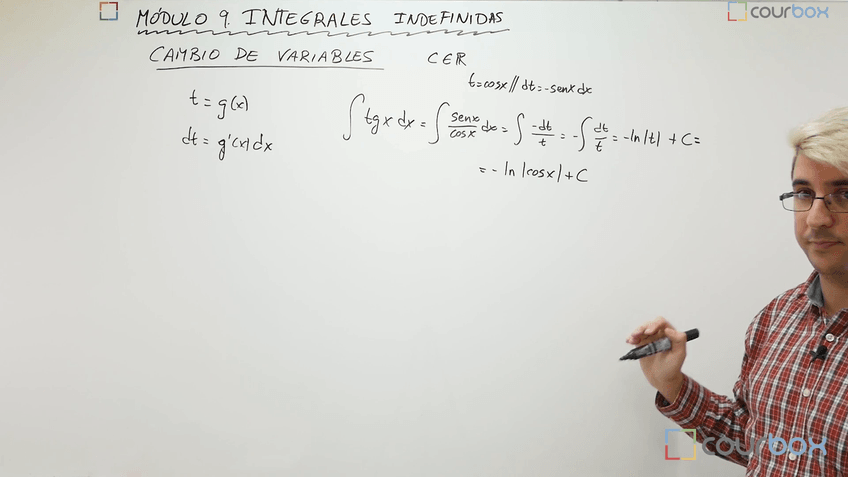 MÓDULO 9. INTEGRALES INDEFINIDAS
courbox
CAMBIO DE VARIABLES
C∈ℝ
t=cosx // dt=-senx dx
t = g(x)
dt = g'(x) dx
∫ tg x dx = ∫ senx/cosx dx = ∫ -dt/t = -∫ dt/t = -ln|t| + C =
= - ln |cosx| + C
courbox